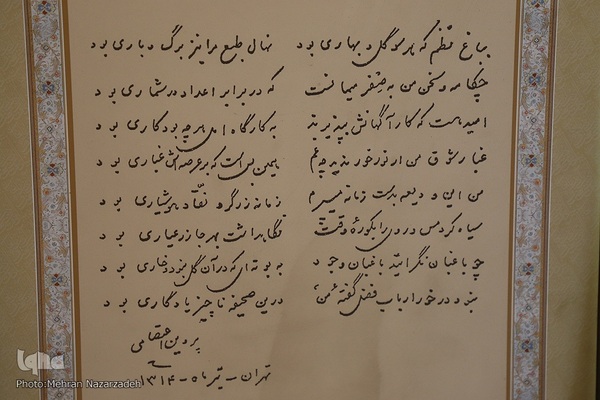 بباغ نظم که هر سو گل و بهاری بود نهال طبع مرا نیز برگ و باری بود
چکامه و سخن من به صفر میمانست که در برابر اعداد در شماری بود
امید هست که کارآگهانش بپذیرند به کارگاه امل هر چه بود کاری بود
غبار شوق من ار نور خور ندید چه غم همین بس است که بر عرصه‌اش غباری بود
من این ودیعه بدست زمانه میسپرم زمانه زرگر و نقّاد هوشیاری بود
سیاه کرد مس و روی را بکورهٔ وقت نگاهداشت بهر جا زر عیاری بود
چو باغبان باغبان وجود به بوته‌ای که در آن گل نبود و خاری بود
نبود در خور ارباب فضل گفتهٔ من درین صحیفه ناچیز یادگاری بود
پروین اعتصامی
تهران - تیر ماه - ۱۳۱۴
iqna
Photo:Mehran Nazarzadeh